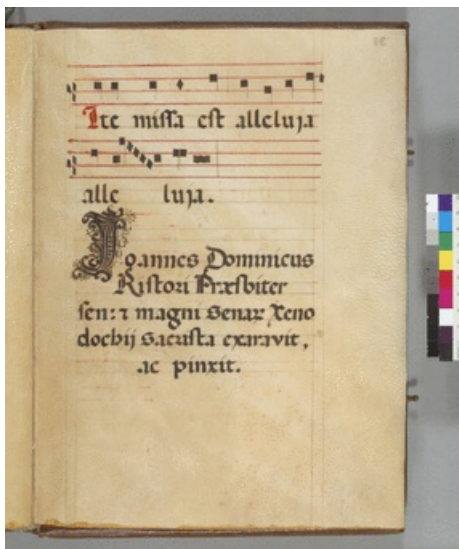 Ite missa est alleluja
alle luja.
Joannes Dominicus
Ristori Præsbiter
sen: & magni Senar Xeno
dochij Sacrista exaravit,
ac pinxit.